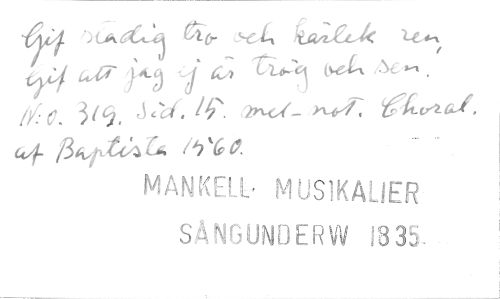 Gif stadig tro och kärlek ren,
Gif att jag ej är trög och sen.
N:o. 319. Sid. 15. mel-not. Choral.
af Baptista 1560.
MANKELL. MUSIKALIER
SÅNGUNDERW 1835.